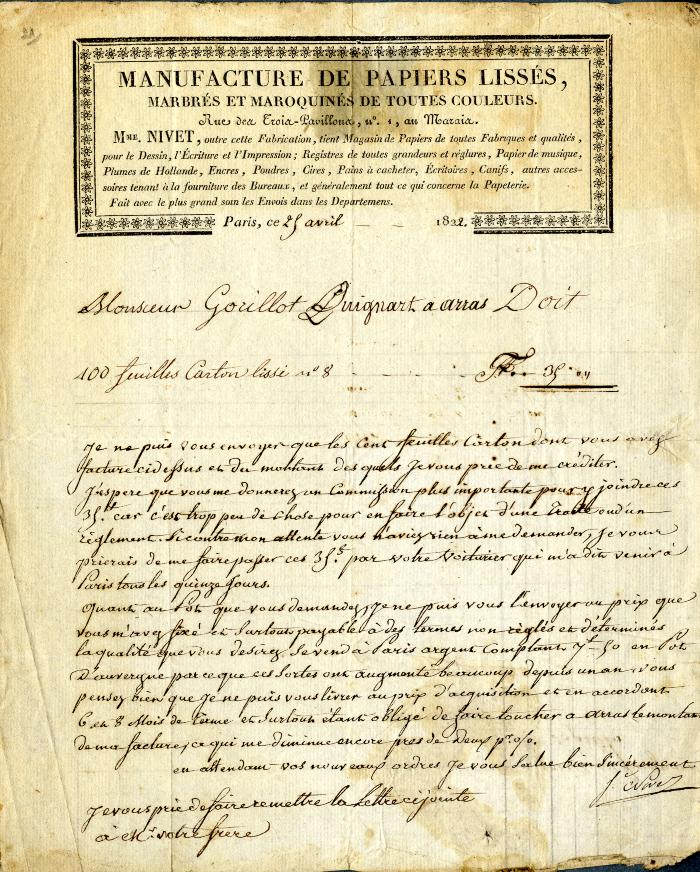 21
MANUFACTURE DE PAPIERS LISSÉS,
MARBRÉS ET MAROQUINÉS DE TOUTES COULEURS.
Rue des Trois-Pavillons, n°. 1, au Marais.
MME. NIVET, outre cette Fabrication, tient Magasin de Papiers de toutes Fabriques et qualités,
pour le Dessin, l'Écriture et l'Impression; Registres de toutes grandeurs et réglures, Papier de musique,
Plumes de Hollande, Encres, Poudres, Cires, Pains à cacheter, Écritoires, Canifs, autres acces-
soires tenant à la fourniture des Bureaux, et généralement tout ce qui concerne la Papeterie.
Fait avec le plus grand soin les Envois dans les Departemens.
Paris, ce 25 avril 1822.
Monsieur Gorillot Quignart a arras Doit
100 feuilles Carton lissé n° 8 35 "
Je ne puis vous envoyer que les cent feuilles Carton dont vous avez
facture cidessus et du montant des quels Je vous prie de me créditer.
J'espere que vous me donnerez un Commission plus importante pour y joindre ces
35 car c'est trop peu de chose pour en faire l'objet d'une traite ou d'un
règlement. Si contre mon attente vous n'aviez rien à me demander, Je vous
prierais de me faire passer ces 35 par votre Voiturier qui m'a dit venir à
Paris tous les quinze Jours.
Quant au Pot que vous demandez, Je ne puis vous l'envoyer au prix que
vous m'avez fixé et surtout payable à des termes non règlés et déterminés
la qualité que vous desirez se vend à Paris argent Comptant 7 50 en Pot
D'auvergne parce que ces Sortes ont augmenté beaucoup depuis un an. vous
pensez bien que Je ne puis vous livrer au prix d'acquisition et en accordant
6 et 8 Mois de terme et surtout étant obligé de faire toucher a arras le montant
de ma facture, ce qui me diminue encore pres de Deux p% .
en attendant vos nouveaux ordres Je vous salue bien sincèrement
Je vous prie de faire remettre la Lettre cijointe
à Mr. votre frere